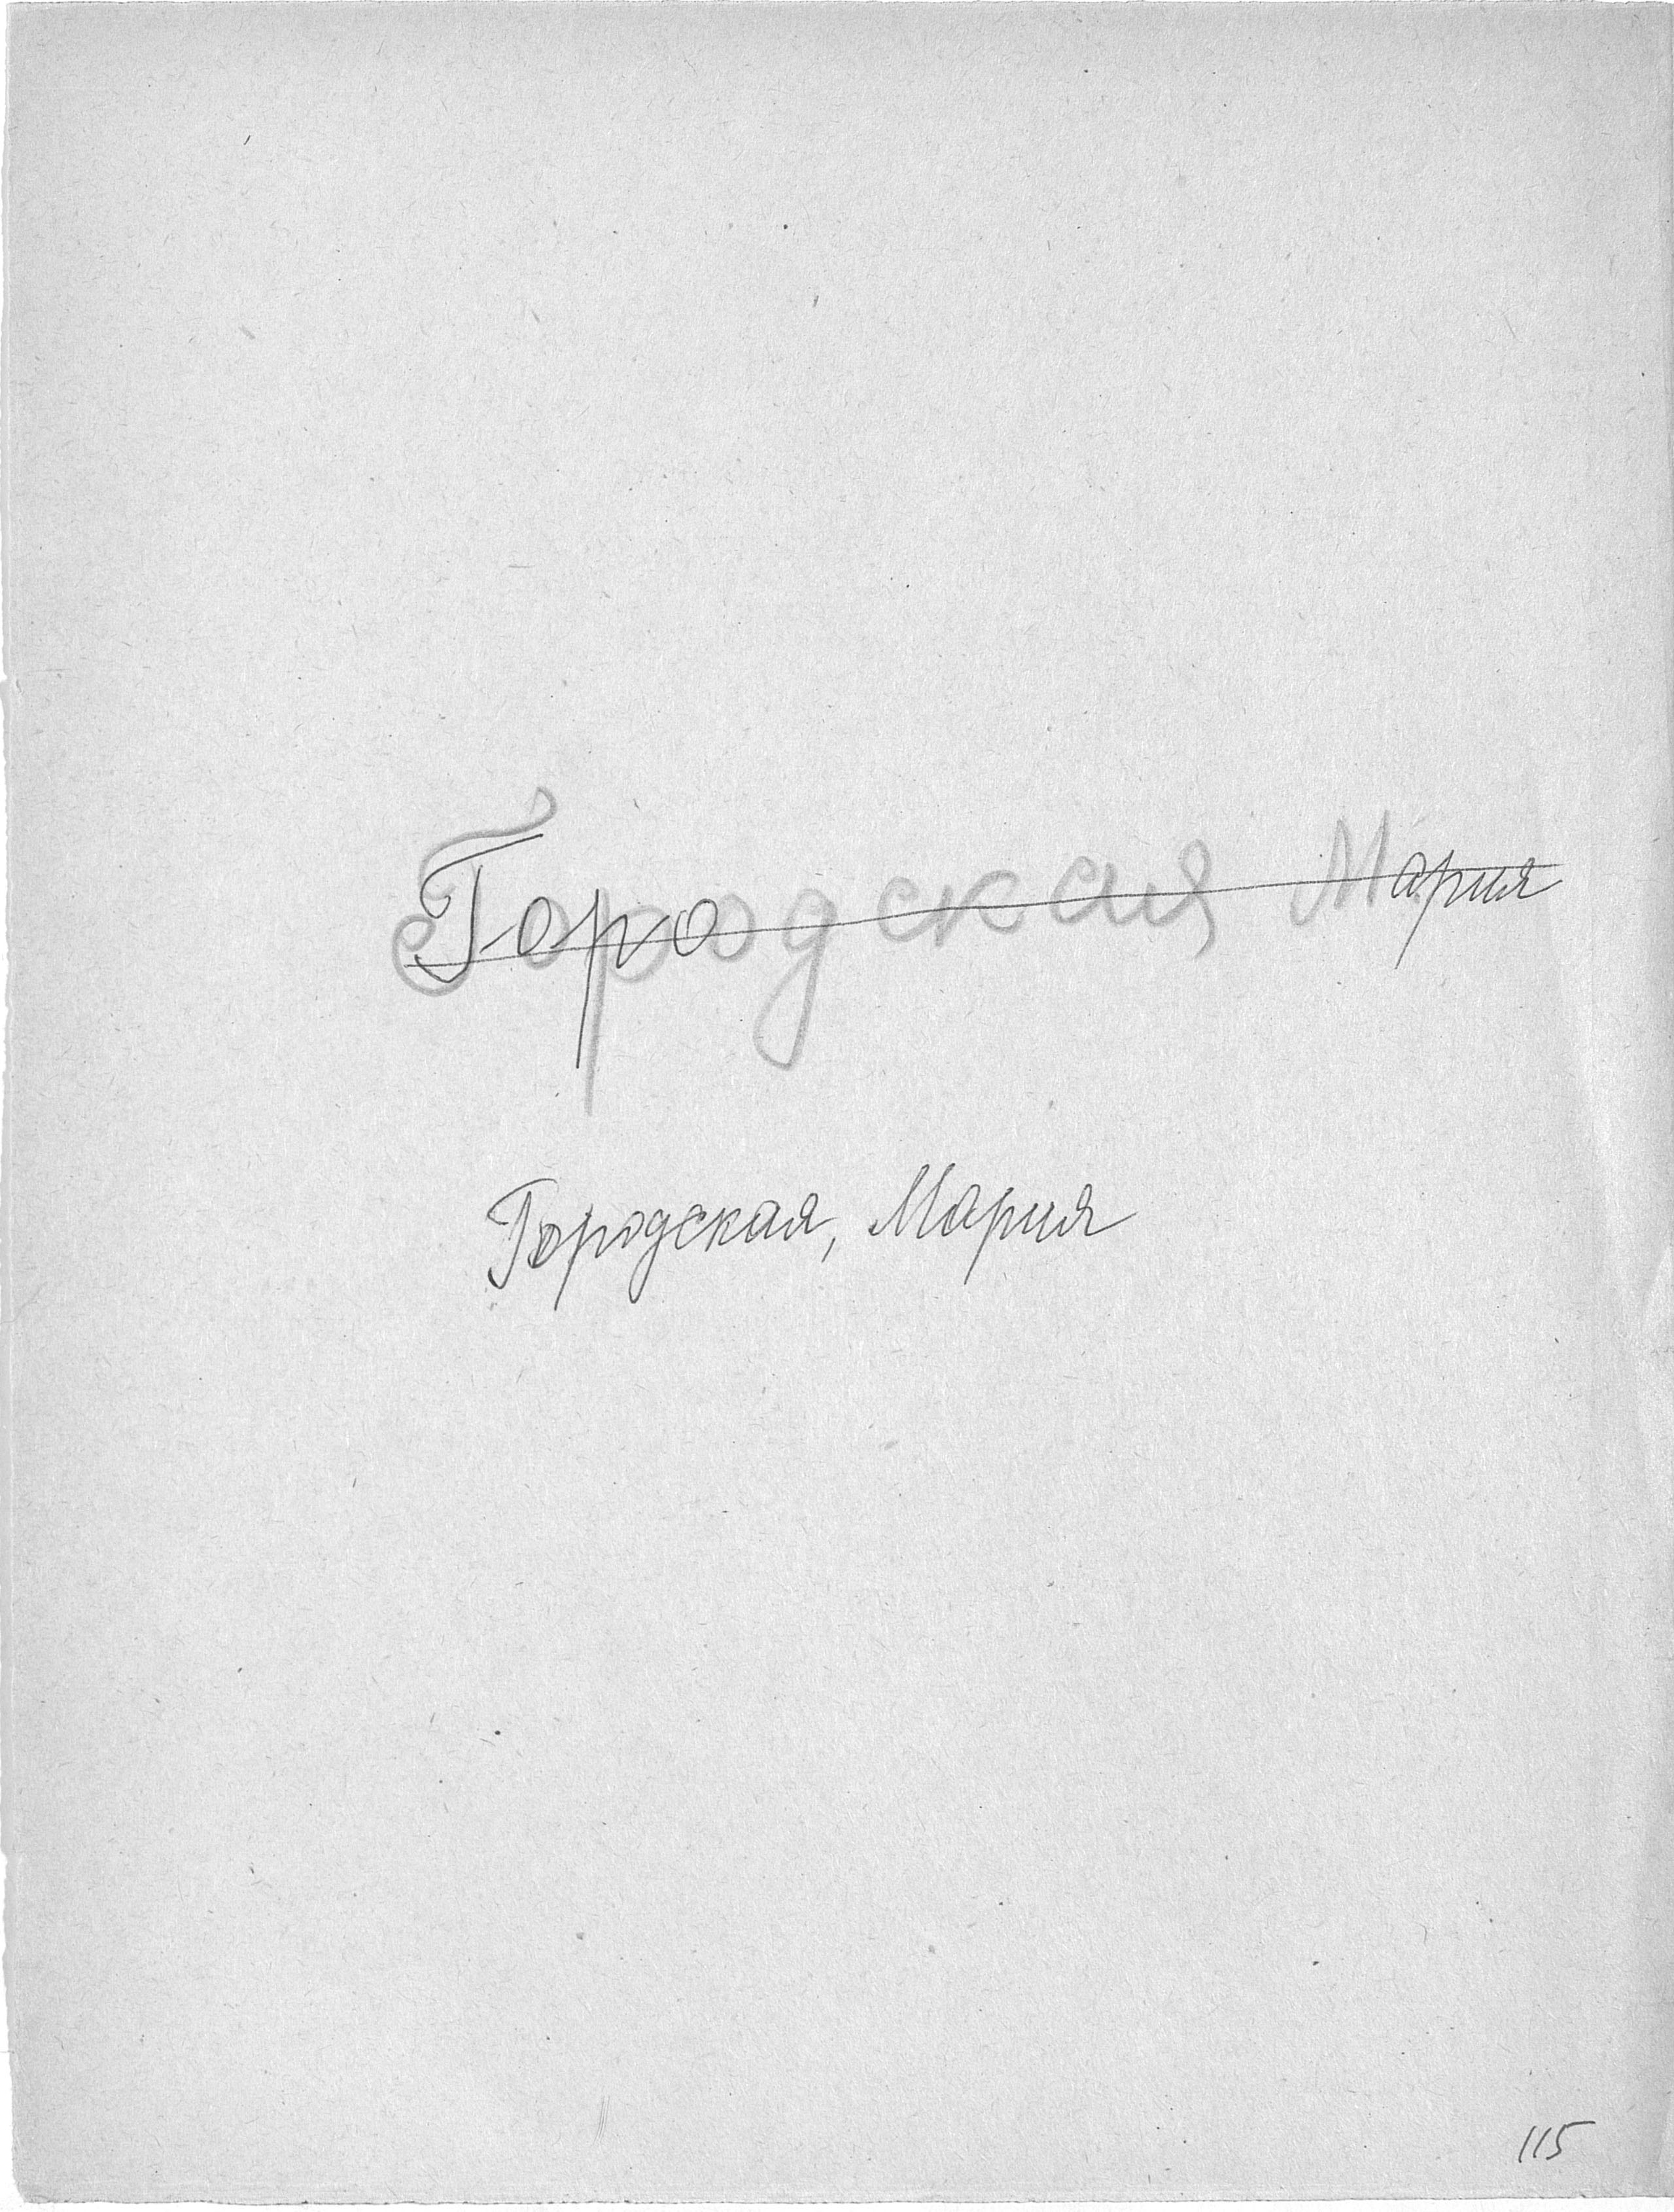 Городская Мария
Городская, Мария
115